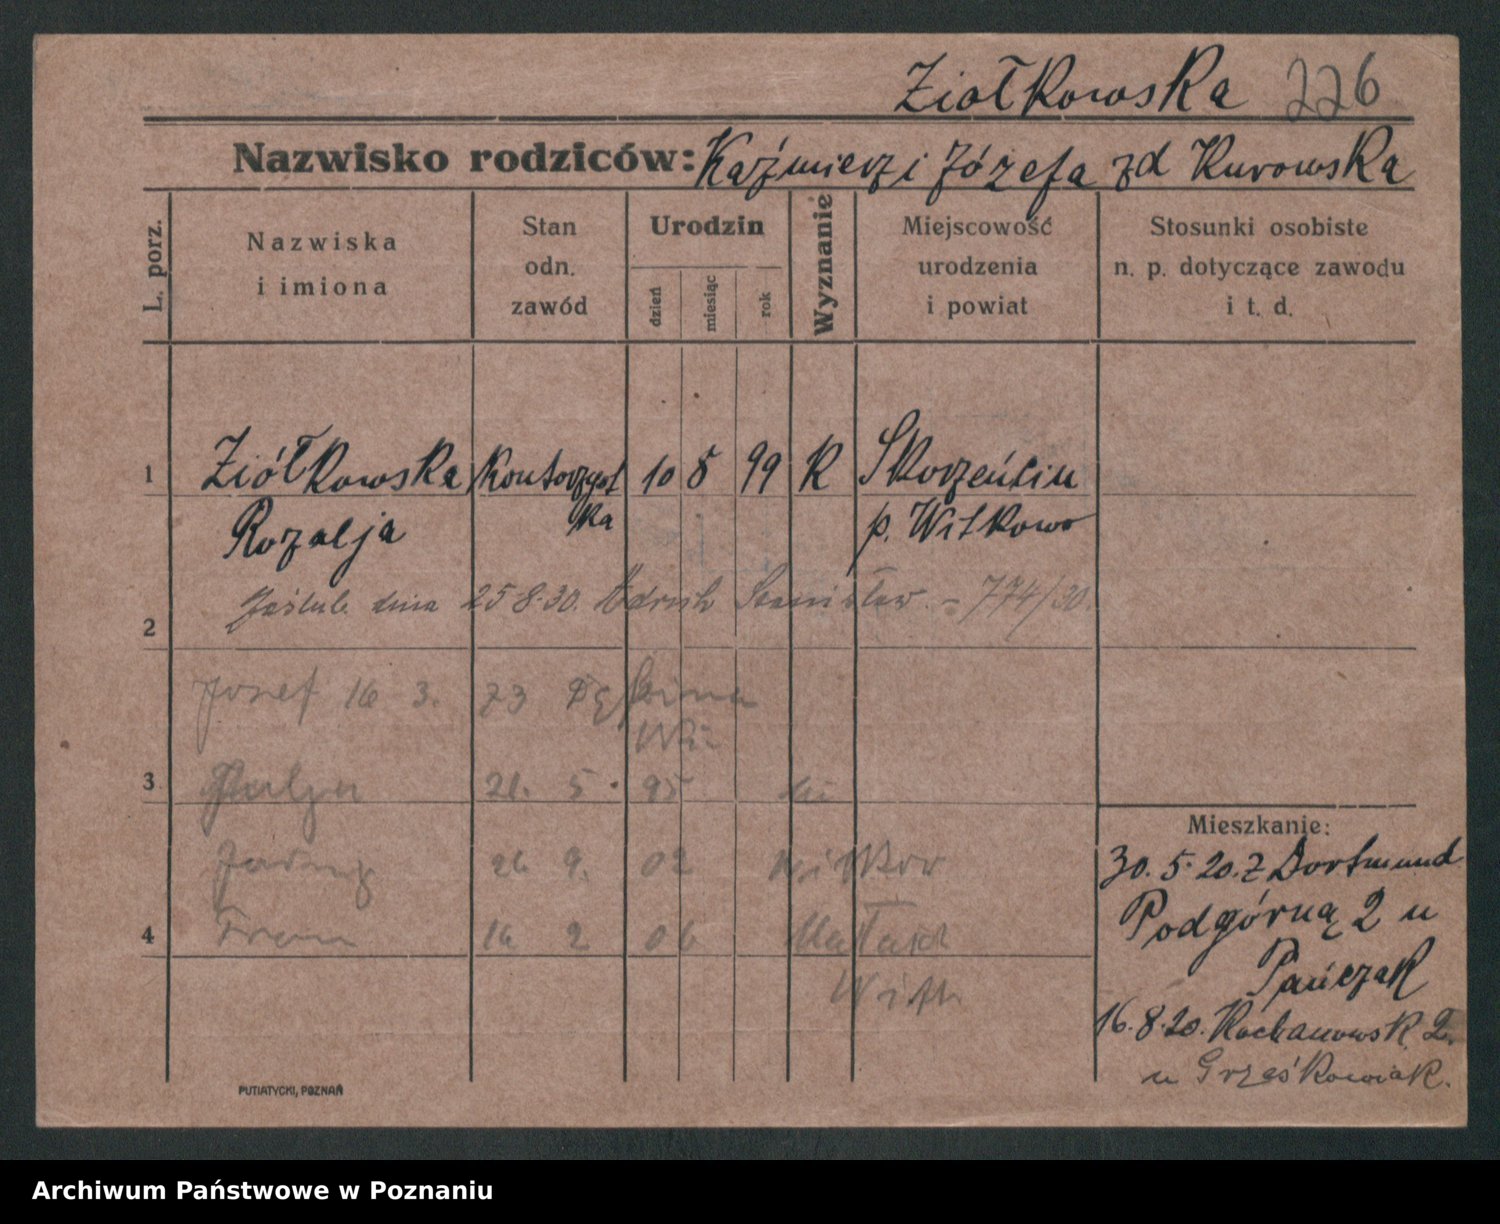 Ziołkowska 226
Nazwisko rodziców: Kaźmierz i Józefa zd Kurowska
L. porz.
Nazwiska i imiona
Stan odn. zawód
Urodzin
dzień
miesiąc
rok
Wyznanie
Miejscowość urodzenia i powiat
Stosunki osobiste n. p. dotyczące zawodu i t. d.
1 Ziółkowska Kontorzyst 10 5 99 K Skorzęńcin
ka
Rozalja p. Witkowo
Zaślub. dnia 25 8.30. Stanisław - 774/30.
2
Josef 16 3. 73
3 21. 5. 95
Jadwig 26 9. 02 Witkow
4 Fran 16 2 06
Witk
Mieszkanie:
30. 5. 20. z Dortmund
Podgórną 2 u
Pańczak
16.8.20. Kochanowsk. 2.
u Grześkowiak.
PUTIATYCKI, POZNAŃ
Archiwum Państwowe w Poznaniu